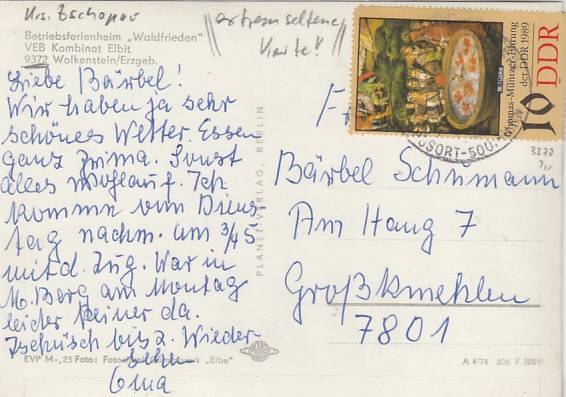 Krs. Zschopau
extrem seltene
Karte!
Betriebsferienheim „Waldfrieden"
VEB Kombinat Elbit
9372 Wolkenstein/Erzgeb.
Liebe Bärbel!
Wir haben ja sehr
schönes Wetter. Essen
ganz prima. Sonst
alles wohlauf. Ich
komme am Diens
tag nachm. um 3/4 5
mit d. Zug. War in
M. Berg am Montag
leider keiner da.
Tschüsch bis z. Wieder
sehn
Oma
EVP M -,25 Foto: "Elbe"
A 4/74 606 F 3091
PLANET-VERLAG, BERLIN
Thomas-Müntzer-Ehrung
der DDR 1989
10 DDR
W. Tübke
USORT-500
3270
Bärbel Schumann
Am Hang 7
Großkmehlen
7801